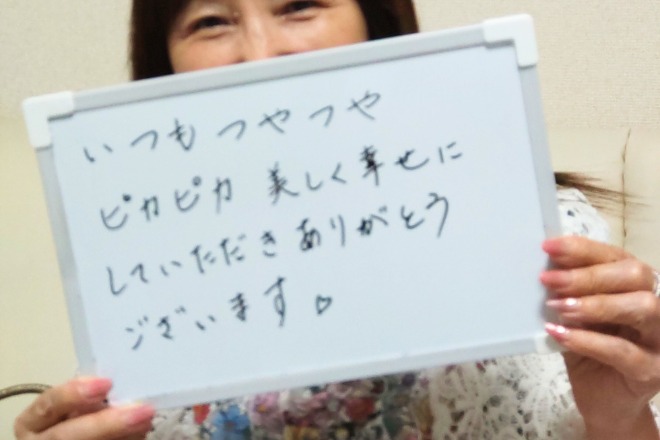 いつもつやつや
ピカピカ 美しく幸せに
していただきありがとう
ございます♡